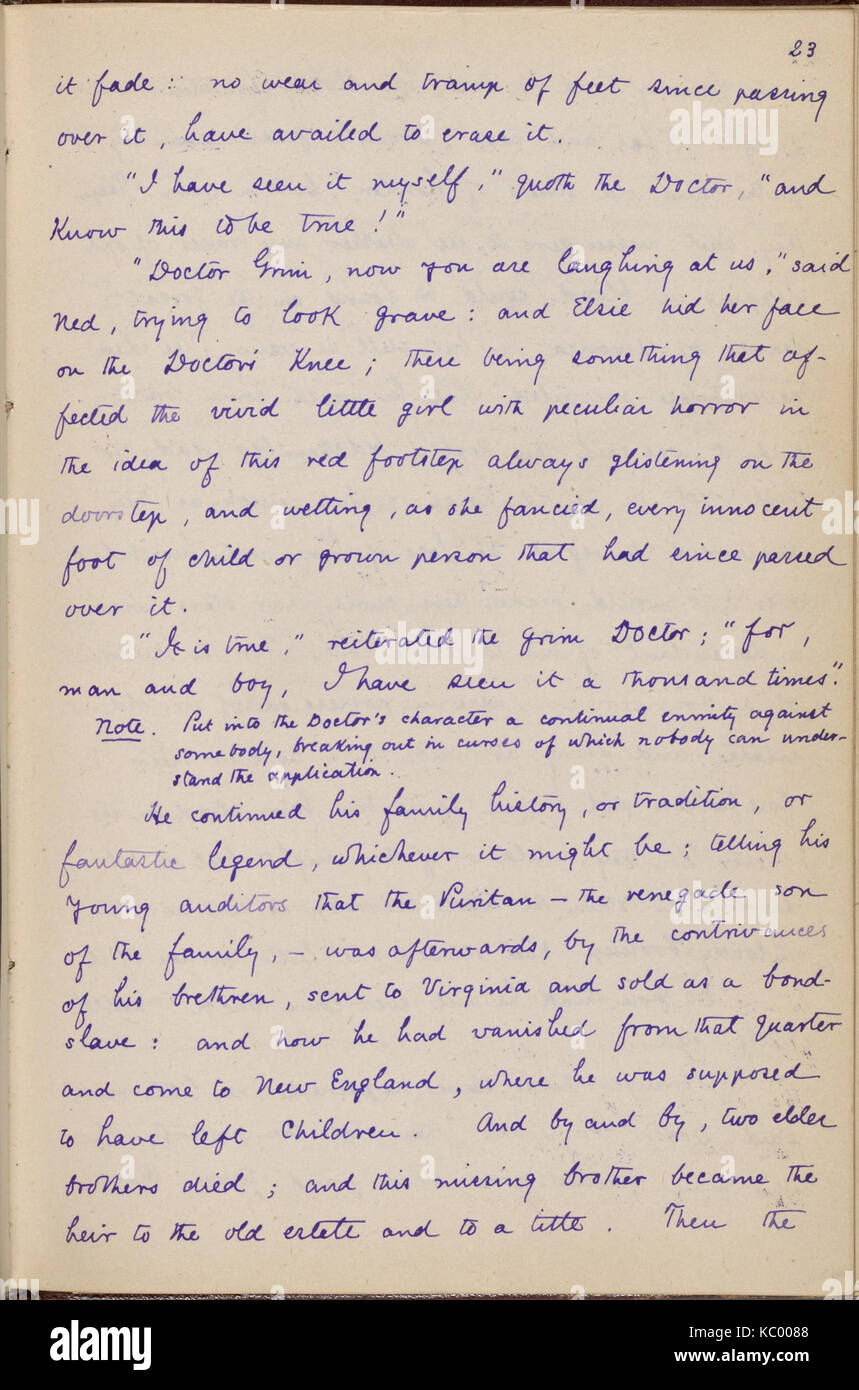 23
it fade: no wear and tramp of feet since passing
over it, have availed to erase it.
"I have seen it myself," quoth the Doctor, "and
Know this to be true!"
"Doctor Grim, now you are laughing at us," said
Ned, trying to look grave: and Elsie hid her face
on the Doctor's Knee; there being something that af-
fected the vivid little girl with peculiar horror in
the idea of this red footstep always glistening on the
doorstep, and wetting, as she fancied, every innocent
foot of child or grown person that had since passed
over it.
"It is true," reiterated the grim Doctor; "for,
man and boy, I have seen it a thousand times."
Note. Put into the Doctor's character a continual enmity against
somebody, breaking out in curses of which nobody can under-
stand the application.
He continued his family history, or tradition, or
fantastic legend, whichever it might be; telling his
young auditors that the Puritan – the renegade son
of the family, – was afterwards, by the contrivances
of his brethren, sent to Virginia and sold as a bond-
slave: and how he had vanished from that quarter
and come to New England, where he was supposed
to have left Children. And by and by, two elder
brothers died; and this missing brother became the
heir to the old estate and to a title. Then the
alamy
Image ID: KC0088
www.alamy.com